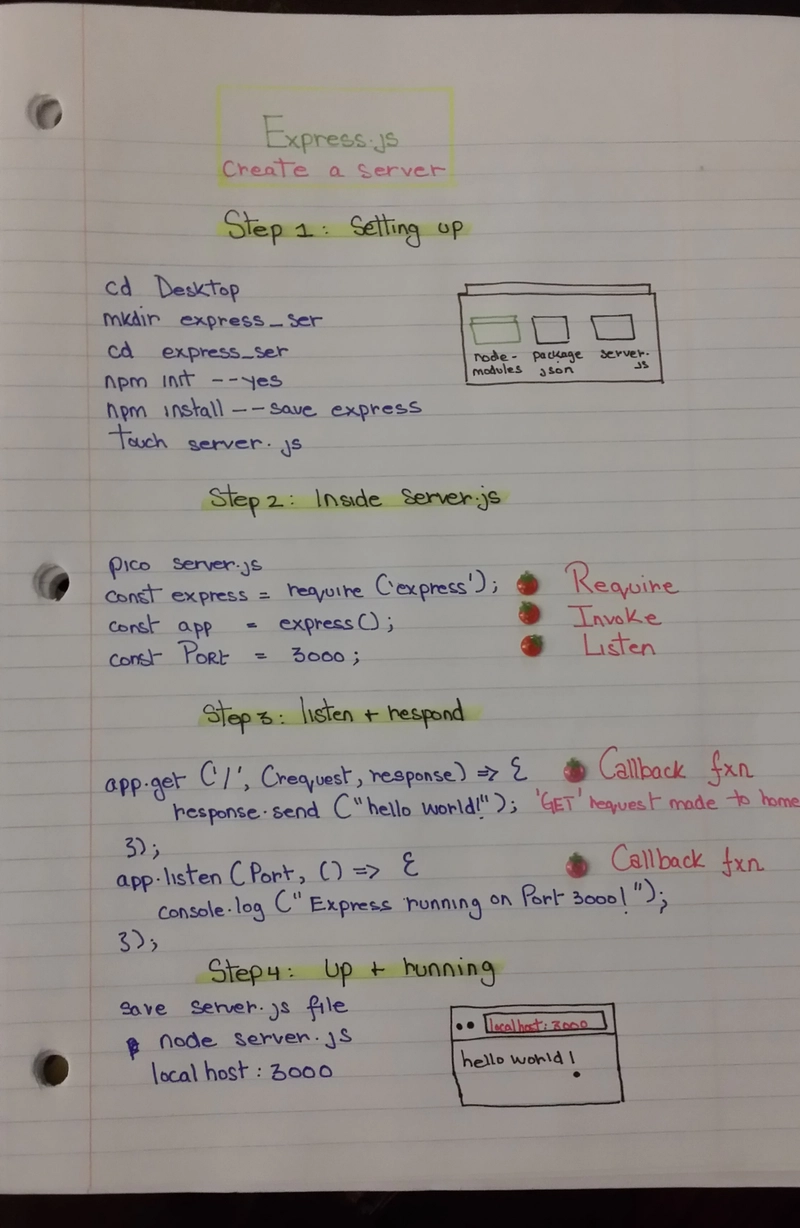 Express.js
Create a server
Step 1: Setting up
cd Desktop
mkdir express_ser
cd express_ser
npm init --yes
npm install --save express
touch server.js
node-
modules
package
json
server.
js
Step 2: Inside server.js
pico server.js
const express = require ('express'); Require
const app = express(); Invoke
const PORT = 3000; Listen
Step 3: listen + respond
app.get ('/', (request, response) => { Callback fxn
response.send ("hello world!"); 'GET' request made to home
});
app.listen (Port, () => { Callback fxn
console.log ("Express running on Port 3000!");
});
Step 4: Up + running
save server.js file
node server.js
localhost: 3000
localhost: 3000
hello world!